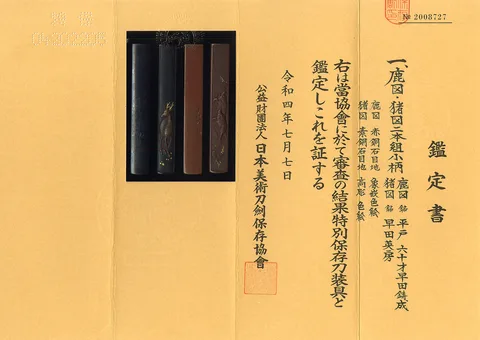 № 2008727
鑑定書
一、鹿図・猪図二本組小柄
鹿図 銘 平戸 六十才早田鎮成
猪図 銘 早田英房
鹿図 赤銅石目地 象嵌色絵
猪図 素銅石目地 高彫 色絵
右は當協會に於て審査の結果特別保存刀装具と
鑑定しこれを証する
令和四年七月七日
公益財團法人 日本美術刀劍保存協會